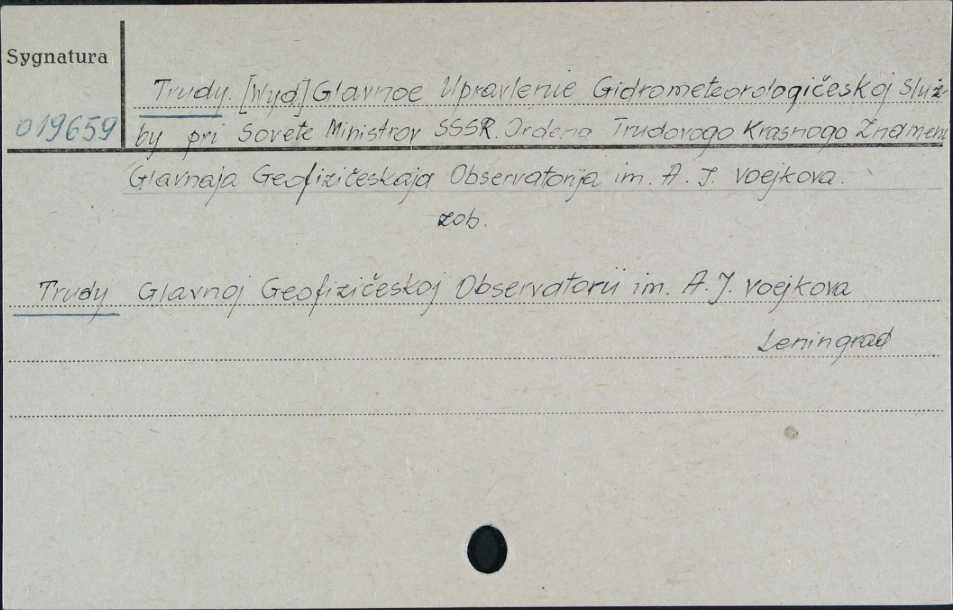 Sygnatura
Trudy. [Wyd] Glavnoe Upravlenie Gidrometeorologičeskoj služ-
019659
by pri Sovete Ministrov SSSR. Ordena Trudovogo Krasnogo Znameni
Glavnaja Geofizičeskaja Observatorija im. A. I. Voejkova.
zob.
Trudy Glavnoj Geofizičeskoj Observatorii im. A. I. Voejkova
Leningrad